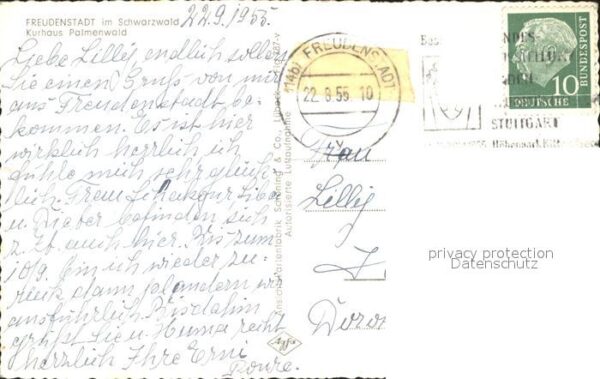 FREUDENSTADT im Schwarzwald
Kurhaus Palmenwald
22.9.1955.
Liebe Lilly, endlich sollen
Sie einen Gruß von mir
aus Freudenstadt be-
kommen. Es ist hier
wirklich herrlich ich
fühle mich sehr glück-
lich. Frau
u. befinden sich
z. Zt. auch hier. Bis zum
10/9. bin ich wieder zu-
rück dann plaudern wir
ausführlich. Bis dahin
grüßt Sie u. recht
herzlich Ihre Erni
Ansichtskartenfabrik Schöning & Co., Lübeck
Autorisierte Luftaufnahme
Agfa
(14b) FREUDENSTADT
22.8.55. 10
y
STUTTGART
10
DEUTSCHE
BUNDESPOST
Frau
Lilly
privacy protection
Datenschutz